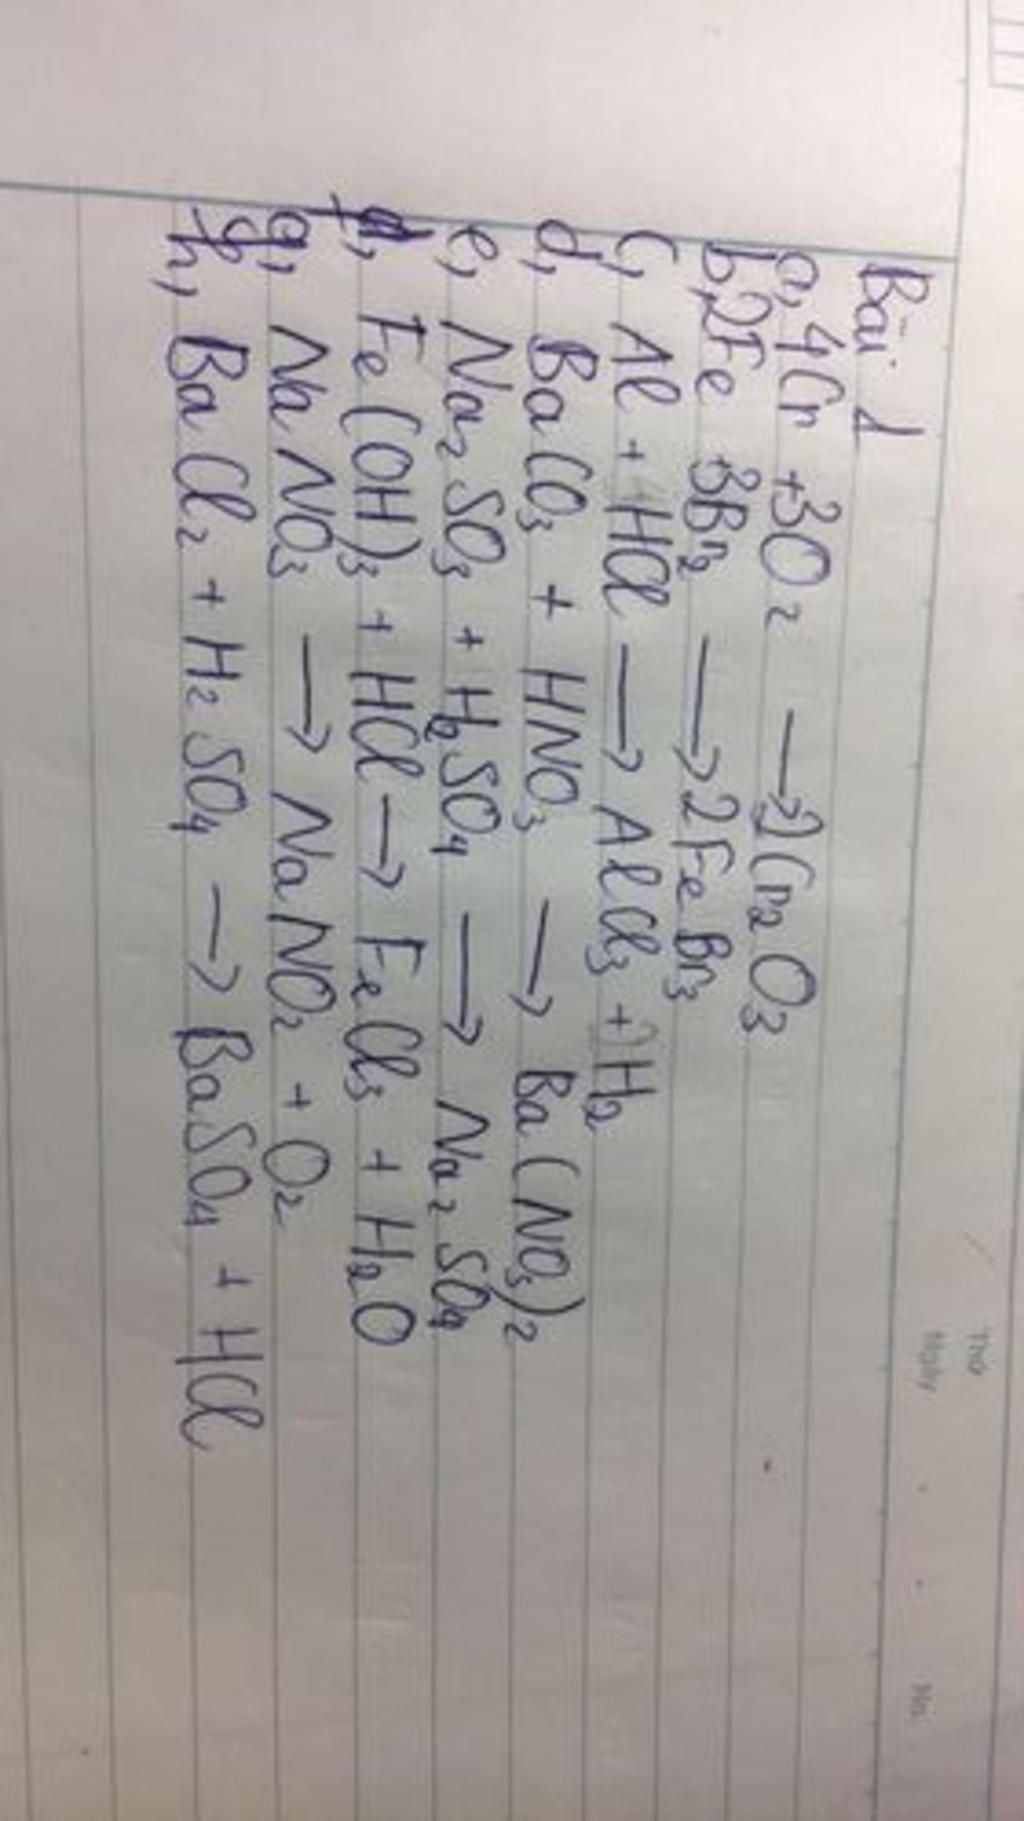 Bài 1
a, 4Cr + 3O2 → 2Cr2O3
b, 2Fe + 3Br2 → 2FeBr3
c, Al + HCl → AlCl3 + H2
d, BaCO3 + HNO3 → Ba(NO3)2
e, Na2SO3 + H2SO4 → Na2SO4
f, Fe(OH)3 + HCl → FeCl3 + H2O
g, NaNO3 → NaNO2 + O2
h, BaCl2 + H2SO4 → BaSO4 + HCl
Thứ
Ngày
No.